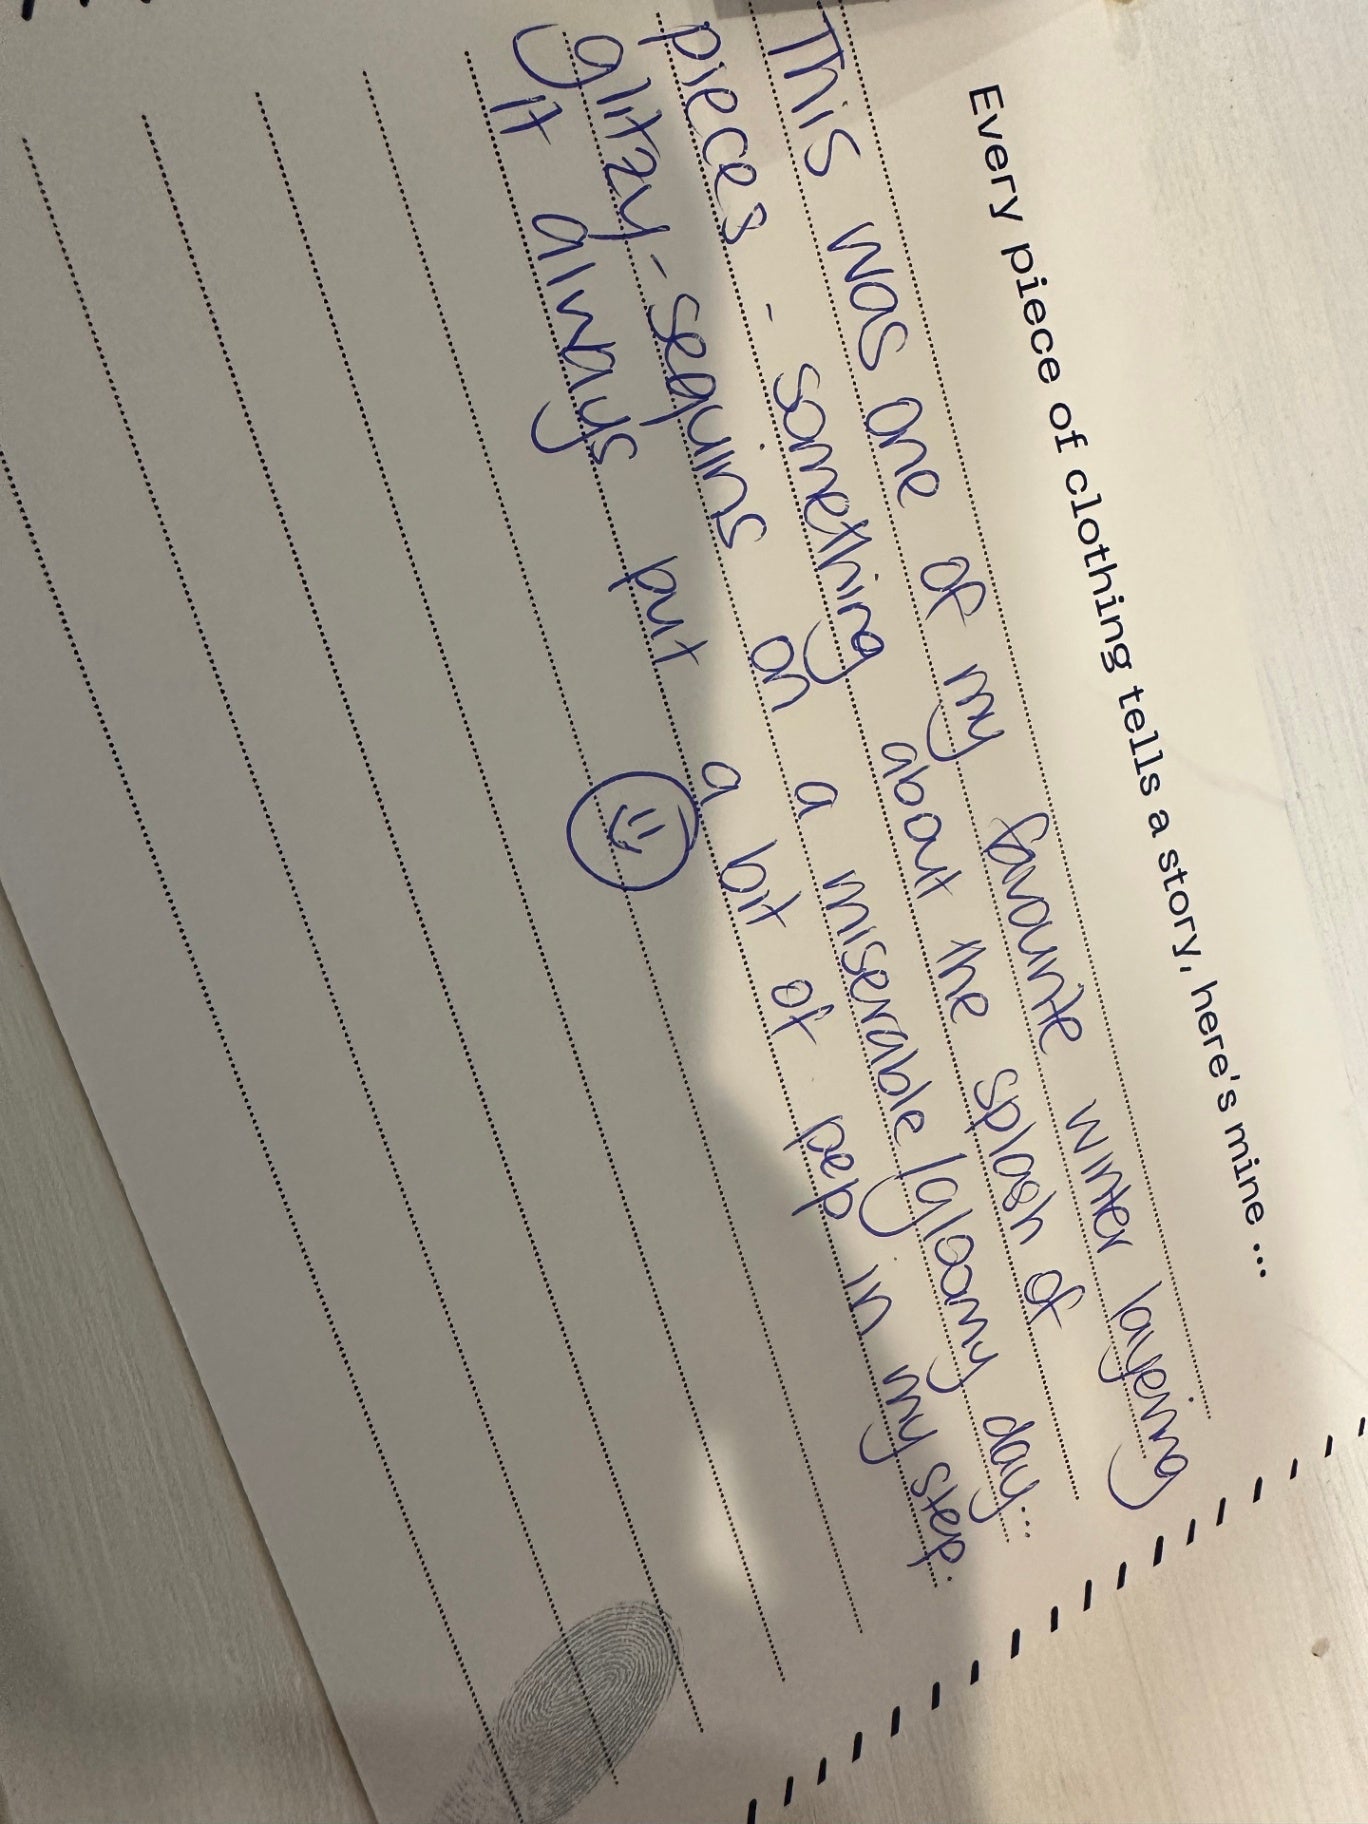 Every piece of clothing tells a story, here's mine ...
This was one of my favourite winter layering
pieces - something about the splash of
glitzy-sequins on a miserable/gloomy day...
It always put a bit of pep in my step.